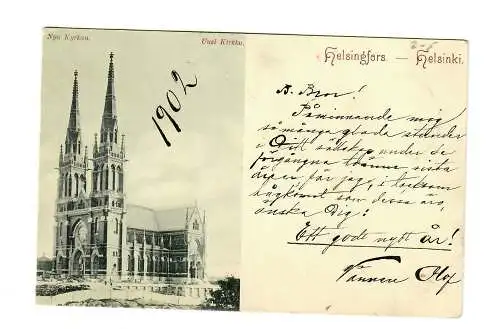 Nya Kyrkan.
Uusi Kirkko.
Helsingfors. — Helsinki.
1902
B. Bror!
Påminnande mig
så många glada stunder
i Ditt sällskap under de
förgångna åren, sista
för jag, i
hågkomst som dessa äro,
önska Dig:
Ett godt nytt år!
Vännen Olof